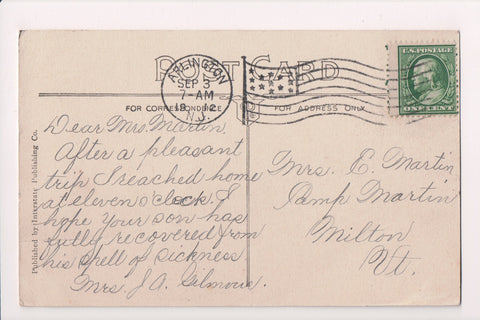 POST CARD
ARLINGTON
SEP 3
7-AM
1912
N.J.
U.S. POSTAGE
ONE CENT
FOR CORRESPONDENCE
FOR ADDRESS ONLY
Published by Interstate Publishing Co.
Dear Mrs. Martin
After a pleasant
trip I reached home
at eleven o'clock. I
hope your son has
fully recovered from
his spell of sickness.
Mrs. J. A. Gilmour.
Mrs. E. Martin
Camp Martin
Milton
Vt.